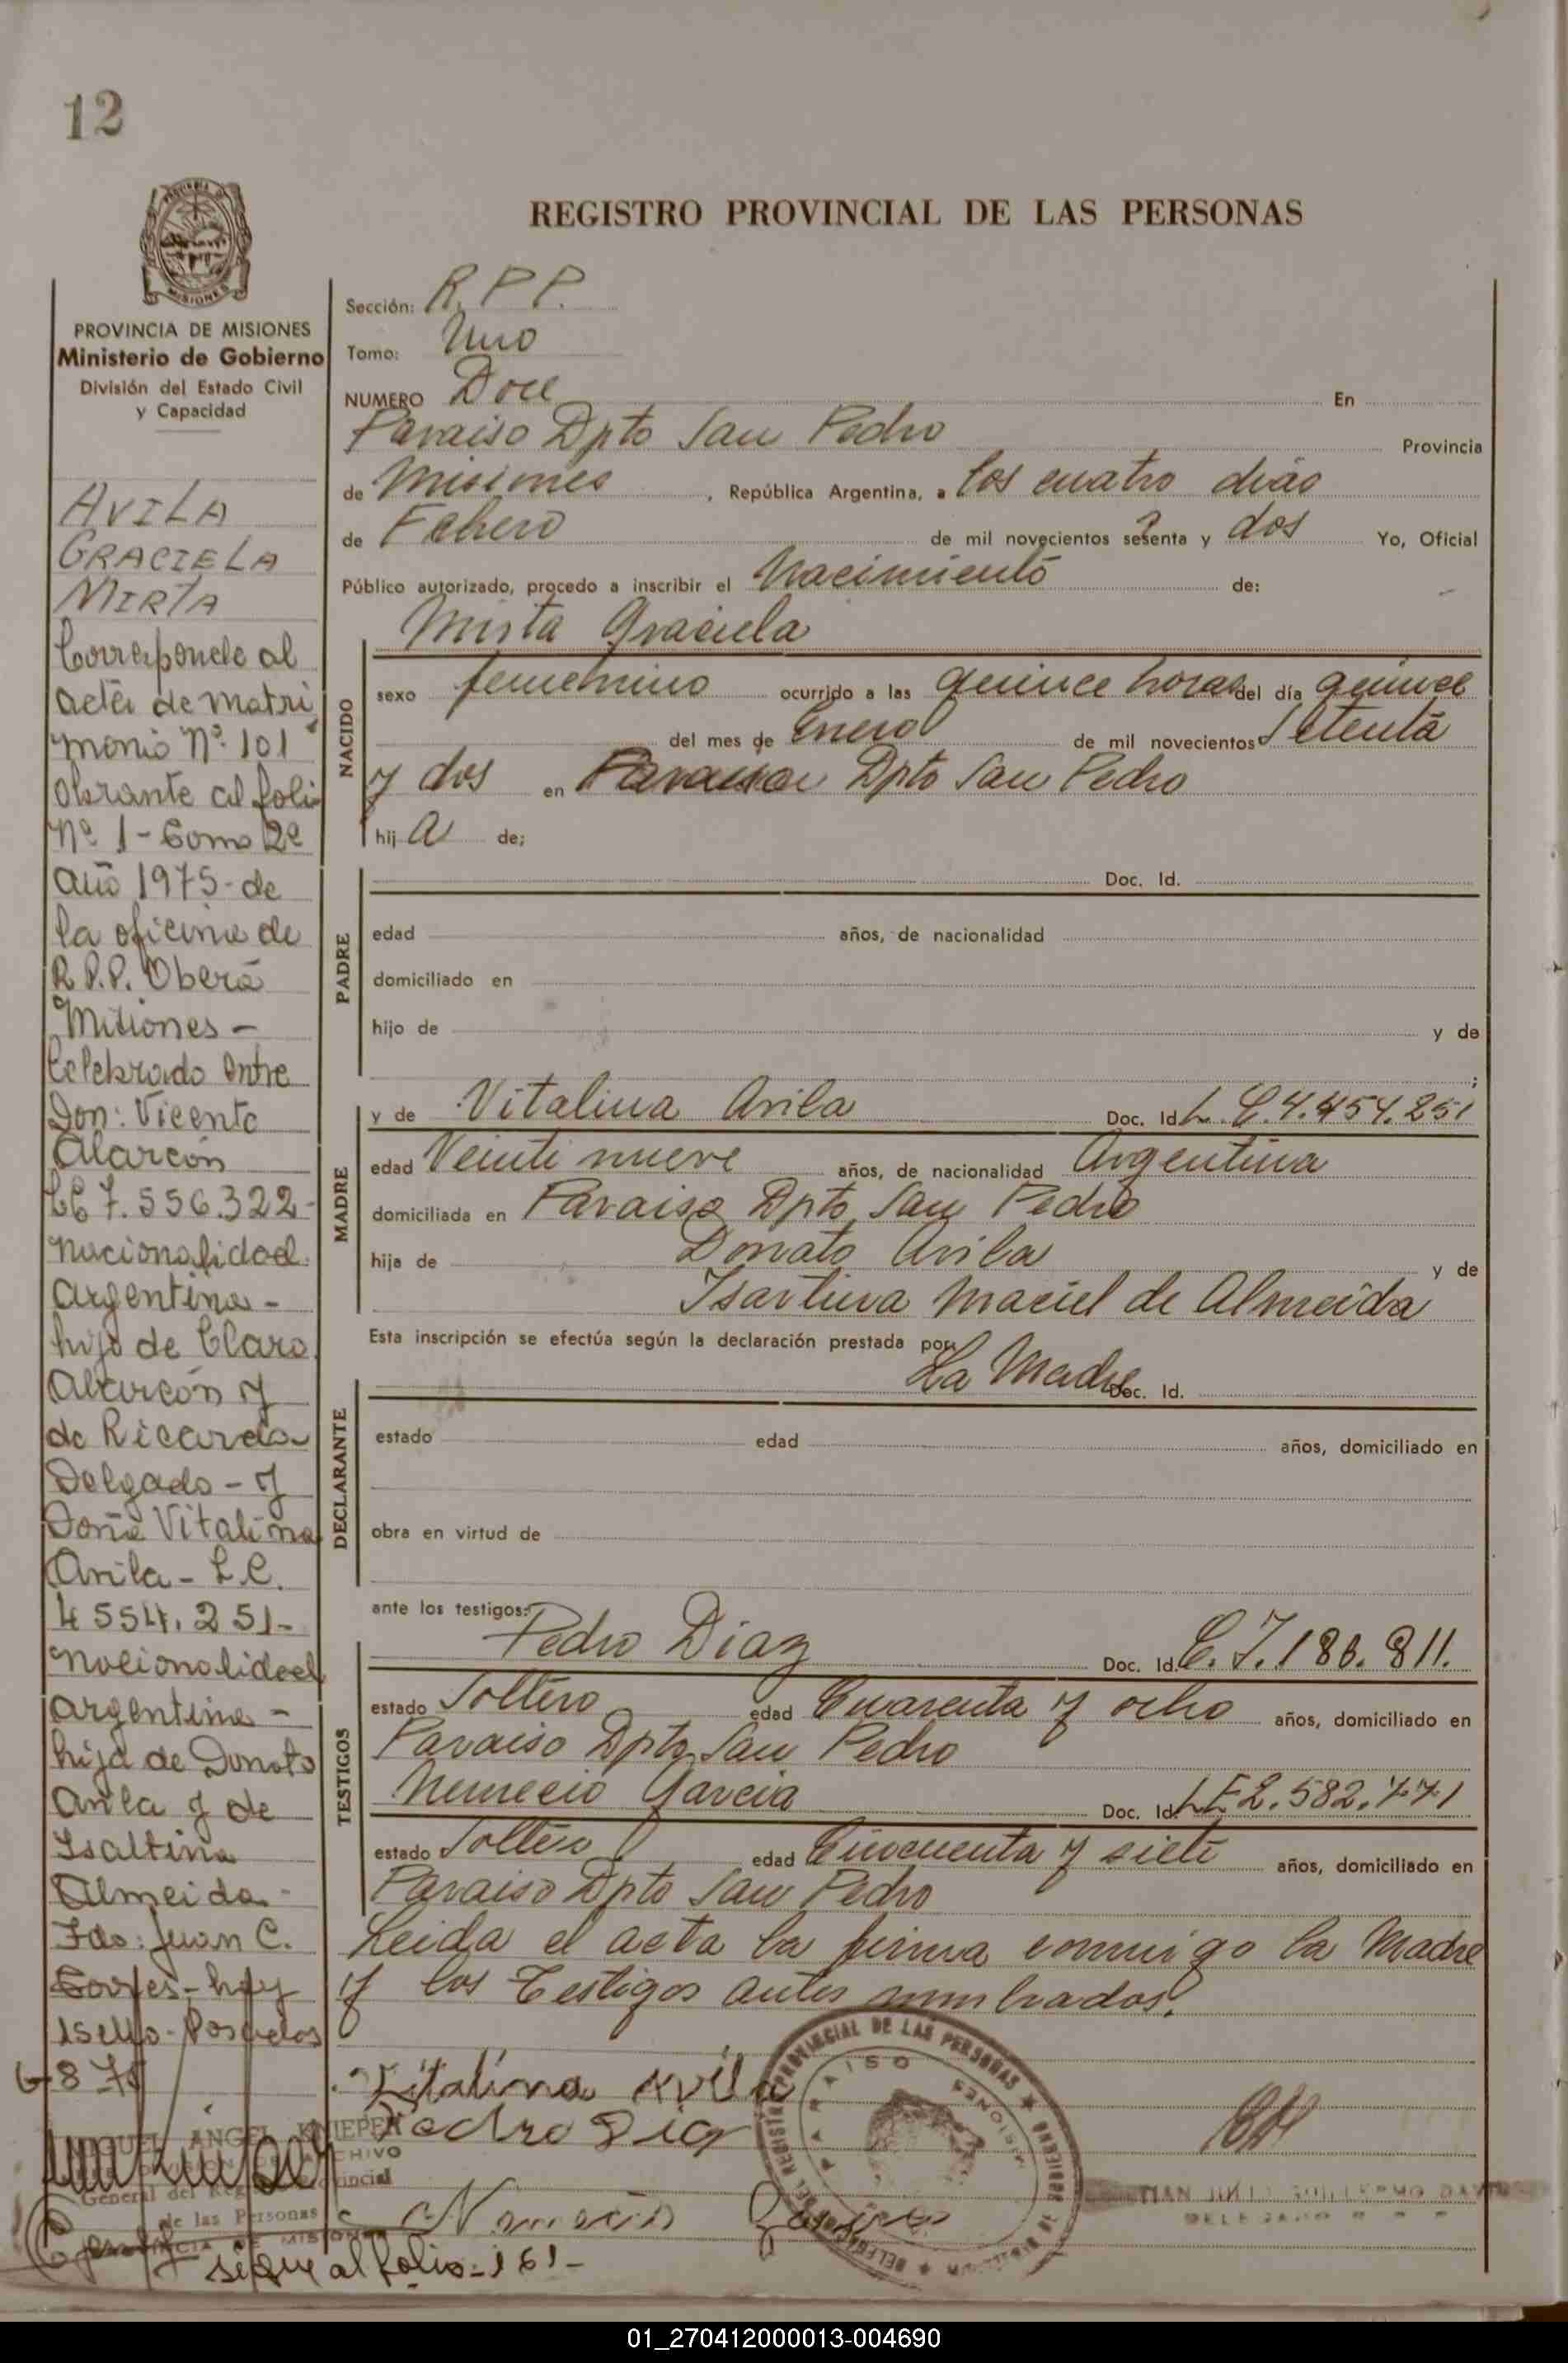 12
REGISTRO PROVINCIAL DE LAS PERSONAS
MISIONES
PROVINCIA DE MISIONES
Ministerio de Gobierno
División del Estado Civil
y Capacidad
AVILA
GRACIELA
MIRTA
Corresponde al
acta de matri
monio Nº 101
obrante al folio
Nº 1 - Tomo 2º
año 1975 - de
la oficina de
R.P.P. Oberá
Misiones -
Celebrado entre
Don: Vicente
Alarcón
7.556.322-
nacionalidad
argentina -
hijo de Claro
Alarcón y
de Ricarda
Delgado - y
Doña Vitalina
Avila - L.C.
4554.251-
nacionalidad
argentina -
hija de Donato
Avila y de
Isaltina
Almeida -
Fdo: Juan C.
Torres - hay
1 sello - Posadas
6-8-75
Sección: R.P.P.
Tomo: Uno
NUMERO Doce En
Paraiso Dpto San Pedro Provincia
de Misiones, República Argentina, a los cuatro dias
de Febrero de mil novecientos setenta y dos Yo, Oficial
Público autorizado, procedo a inscribir el Nacimiento de:
Mirta Graciela
NACIDO
sexo femenino ocurrido a las quince horas del día quince
del mes de Enero de mil novecientos Setenta
y dos en Paraiso Dpto San Pedro
hij a de;
PADRE
Doc. Id.
edad años, de nacionalidad
domiciliado en
hijo de y de
;
MADRE
y de Vitalina Avila Doc. Id. L.C. 4.454.251
edad Veinti nueve años, de nacionalidad Argentina
domiciliada en Paraiso Dpto San Pedro
hija de Donato Avila y de
Isartina Maciel de Almeida
Esta inscripción se efectúa según la declaración prestada por:
DECLARANTE
La Madre Doc. Id.
estado edad años, domiciliado en
obra en virtud de
ante los testigos:
TESTIGOS
Pedro Diaz Doc. Id. C.I. 186.811.
estado Soltero edad Cuarenta y ocho años, domiciliado en
Paraiso Dpto San Pedro
Nemecio Garcia Doc. Id. LE 2.582.771
estado Soltero edad Cincuenta y siete años, domiciliado en
Paraiso Dpto San Pedro
Leida el acta la firma conmigo la Madre
y los Testigos antes nombrados.
Vitalina Avila
Pedro Dia
General del Reg Provincial
de las Personas
PROVINCIA DE MISIONES
PARAISO
MISIONES
sigue al folio - 161 -
01_270412000013-004690